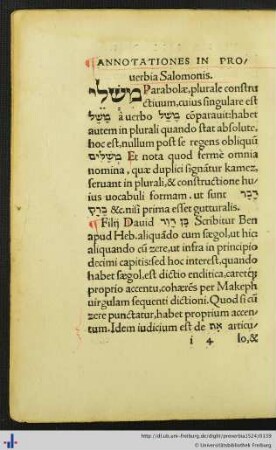 ¶ ANNOTATIONES IN PRO/
uerbia Salomonis.
משלי Parabolæ, plurale constru
ctiuum, cuius singulare est
משל à uerbo משל cōparauit: habet
autem in plurali quando stat absolute,
hoc est, nullum post se regens obliquū
משלים Et nota quod fermè omnia
nomina, quæ duplici signātur kamez,
seruant in plurali, & constructione hu
ius uocabuli formam, ut sunt דבר
ברק &c. nisi prima esset gutturalis.
¶ Filij Dauid בן דוד Scribitur Ben
apud Heb. aliquādo cum sægol, ut hic
aliquando cū zere, ut infra in principio
decimi capitis: sed hoc interest, quando
habet sægol, est dictio enclitica, caretq́;
proprio accentu, cohærēs per Makeph
uirgulam sequenti dictioni. Quod si cū
zere punctatur, habet proprium accen
tum. Idem iudicium est de את articu/
i 4 lo, &
http://dl.ub.uni-freiburg.de/diglit/proverbia1524/0139
© Universitätsbibliothek Freiburg